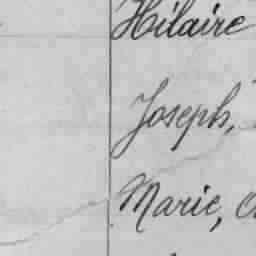 Hilaire
Joseph,
Marie,